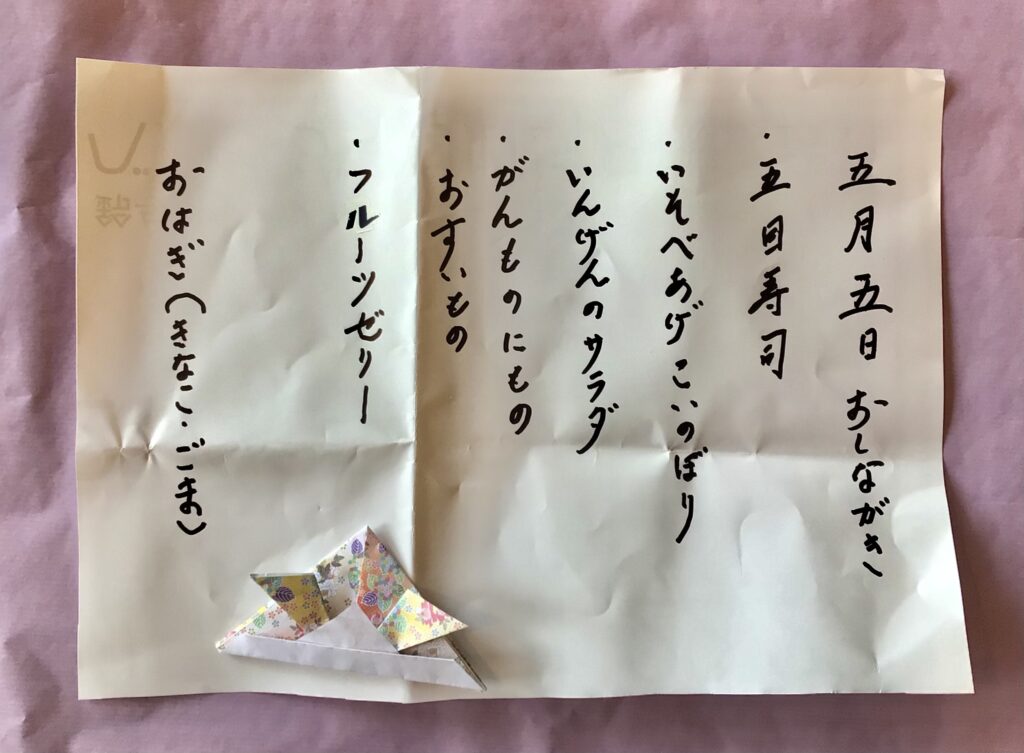 五月五日 おしながき
・五目寿司
・いそべあげ こいのぼり
・いんげんのサラダ
・がんものにもの
・おすいもの
・フルーツゼリー
おはぎ(きなこ・ごま)